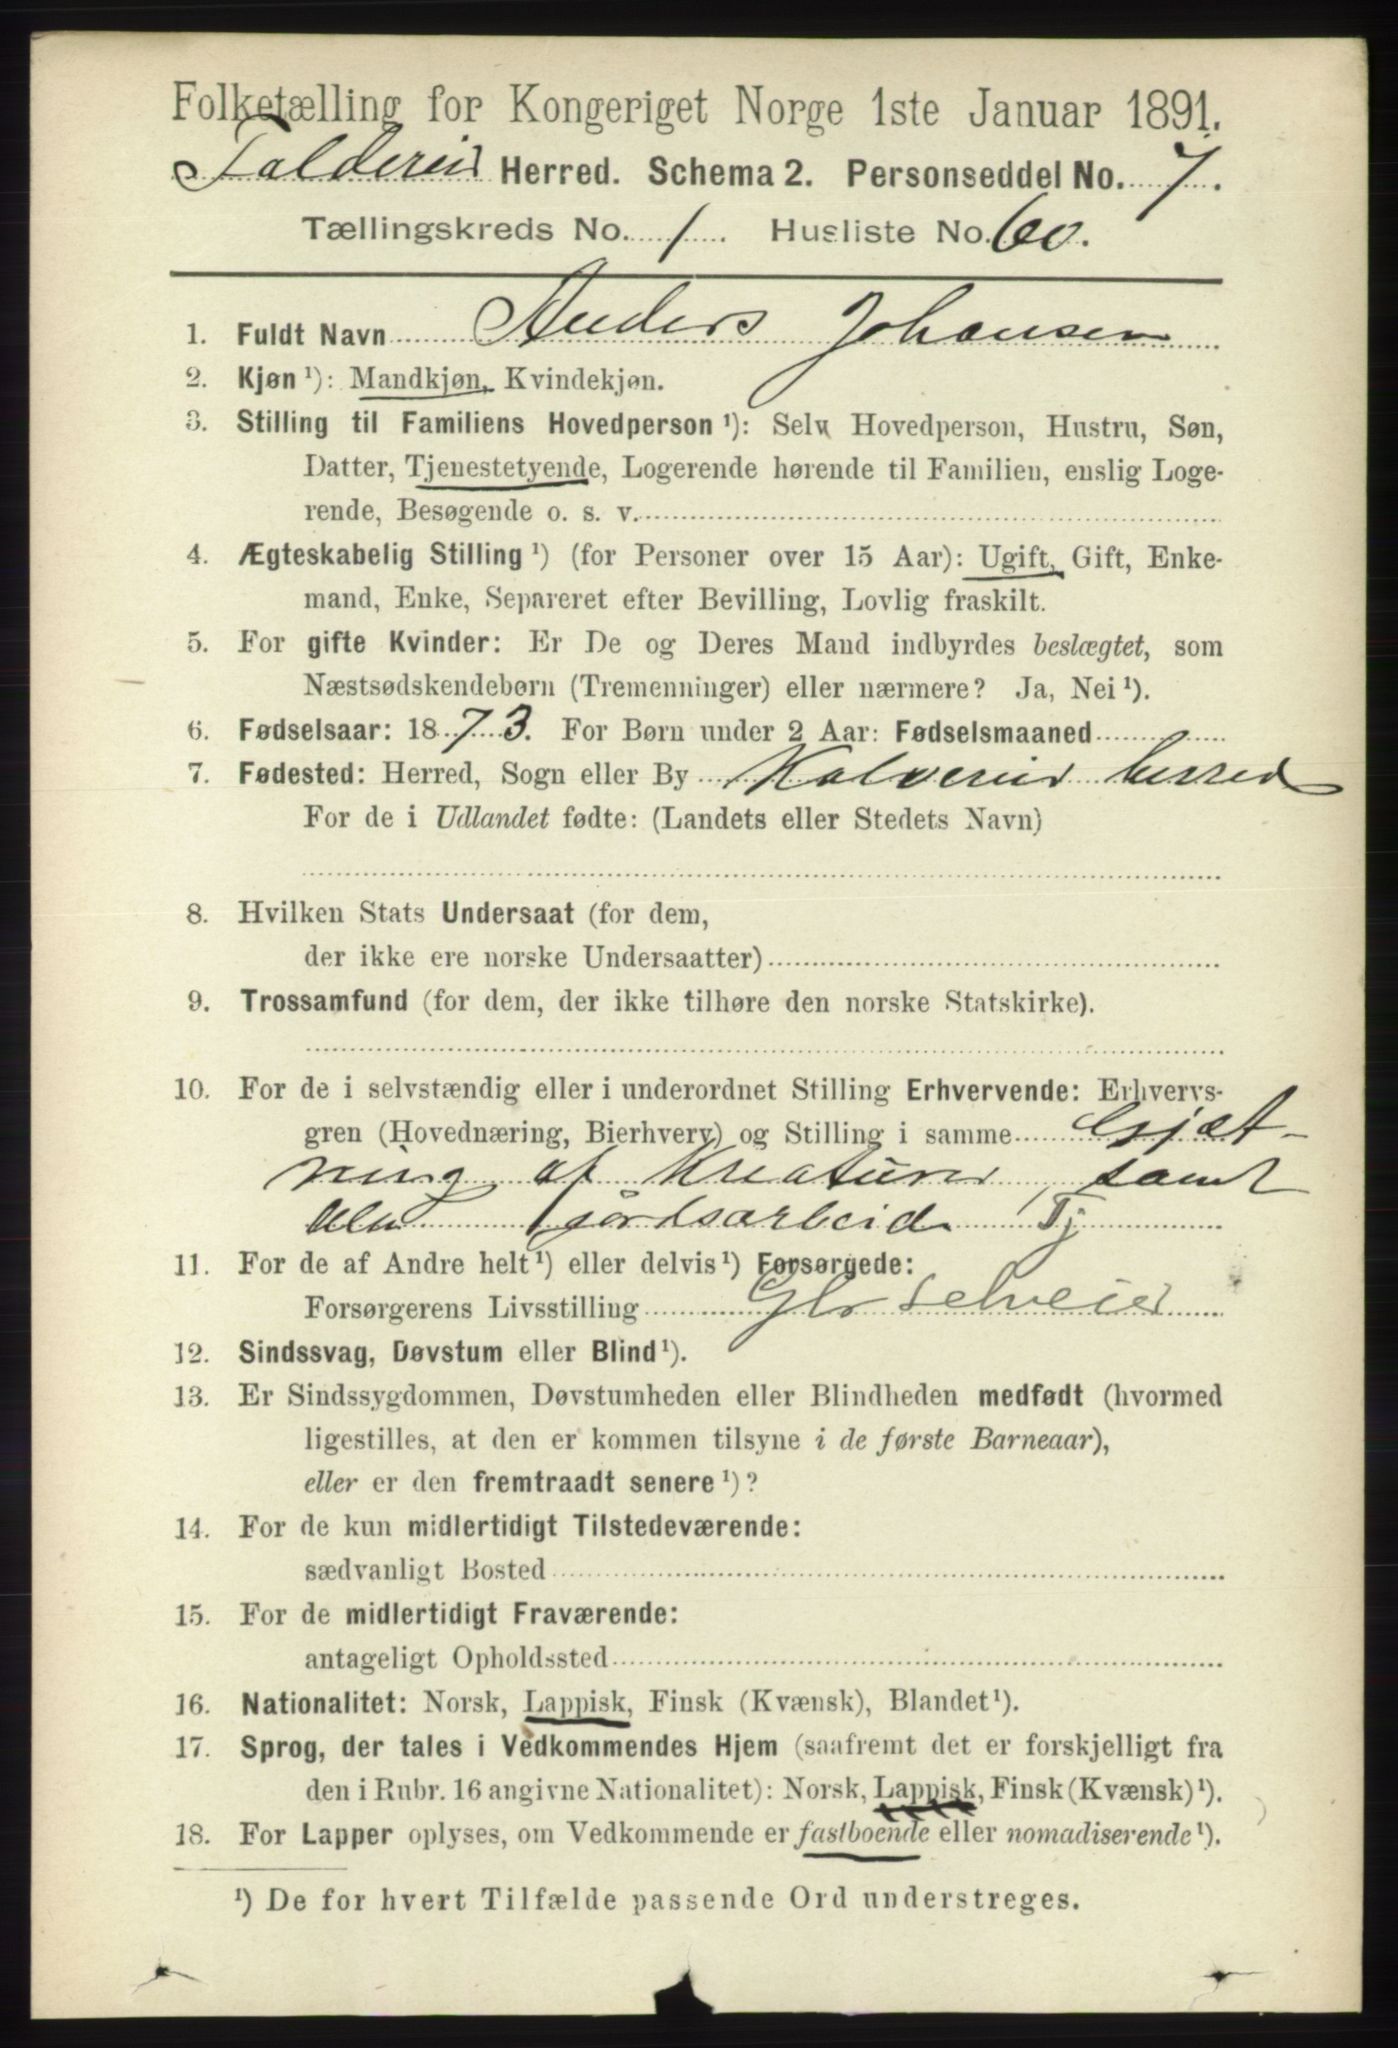 Folketælling for Kongeriget Norge 1ste Januar 1891.
Foldereid Herred. Schema 2. Personseddel No. 7.
Tællingskreds No. 1. Husliste No. 60.
1. Fuldt Navn Anders Johansen
2. Kjøn ¹): Mandkjøn, Kvindekjøn.
3. Stilling til Familiens Hovedperson ¹): Selv Hovedperson, Hustru, Søn,
Datter, Tjenestetyende, Logerende hørende til Familien, enslig Loge-
rende, Besøgende o. s. v.
4. Ægteskabelig Stilling ¹) (for Personer over 15 Aar): Ugift, Gift, Enke-
mand, Enke, Separeret efter Bevilling, Lovlig fraskilt.
5. For gifte Kvinder: Er De og Deres Mand indbyrdes beslægtet, som
Næstsødskendebørn (Tremenninger) eller nærmere? Ja, Nei ¹).
6. Fødselsaar: 1873. For Børn under 2 Aar: Fødselsmaaned
7. Fødested: Herred, Sogn eller By Kolvereid herred
For de i Udlandet fødte: (Landets eller Stedets Navn)
8. Hvilken Stats Undersaat (for dem,
der ikke ere norske Undersaatter)
9. Trossamfund (for dem, der ikke tilhøre den norske Statskirke).
10. For de i selvstændig eller i underordnet Stilling Erhvervende: Erhvervs-
gren (Hovednæring, Bierhverv) og Stilling i samme Gjæt-
ning af Kreaturer, samt
alm jordsarbeide Tj
11. For de af Andre helt ¹) eller delvis ¹) Forsørgede:
Forsørgerens Livsstilling Gbr Selveier
12. Sindssvag, Døvstum eller Blind ¹).
13. Er Sindssygdommen, Døvstumheden eller Blindheden medfødt (hvormed
ligestilles, at den er kommen tilsyne i de første Barneaar),
eller er den fremtraadt senere ¹)?
14. For de kun midlertidigt Tilstedeværende:
sædvanligt Bosted
15. For de midlertidigt Fraværende:
antageligt Opholdssted
16. Nationalitet: Norsk, Lappisk, Finsk (Kvænsk), Blandet ¹).
17. Sprog, der tales i Vedkommendes Hjem (saafremt det er forskjelligt fra
den i Rubr. 16 angivne Nationalitet): Norsk, Lappisk, Finsk (Kvænsk) ¹).
18. For Lapper oplyses, om Vedkommende er fastboende eller nomadiserende ¹).
¹) De for hvert Tilfælde passende Ord understreges.